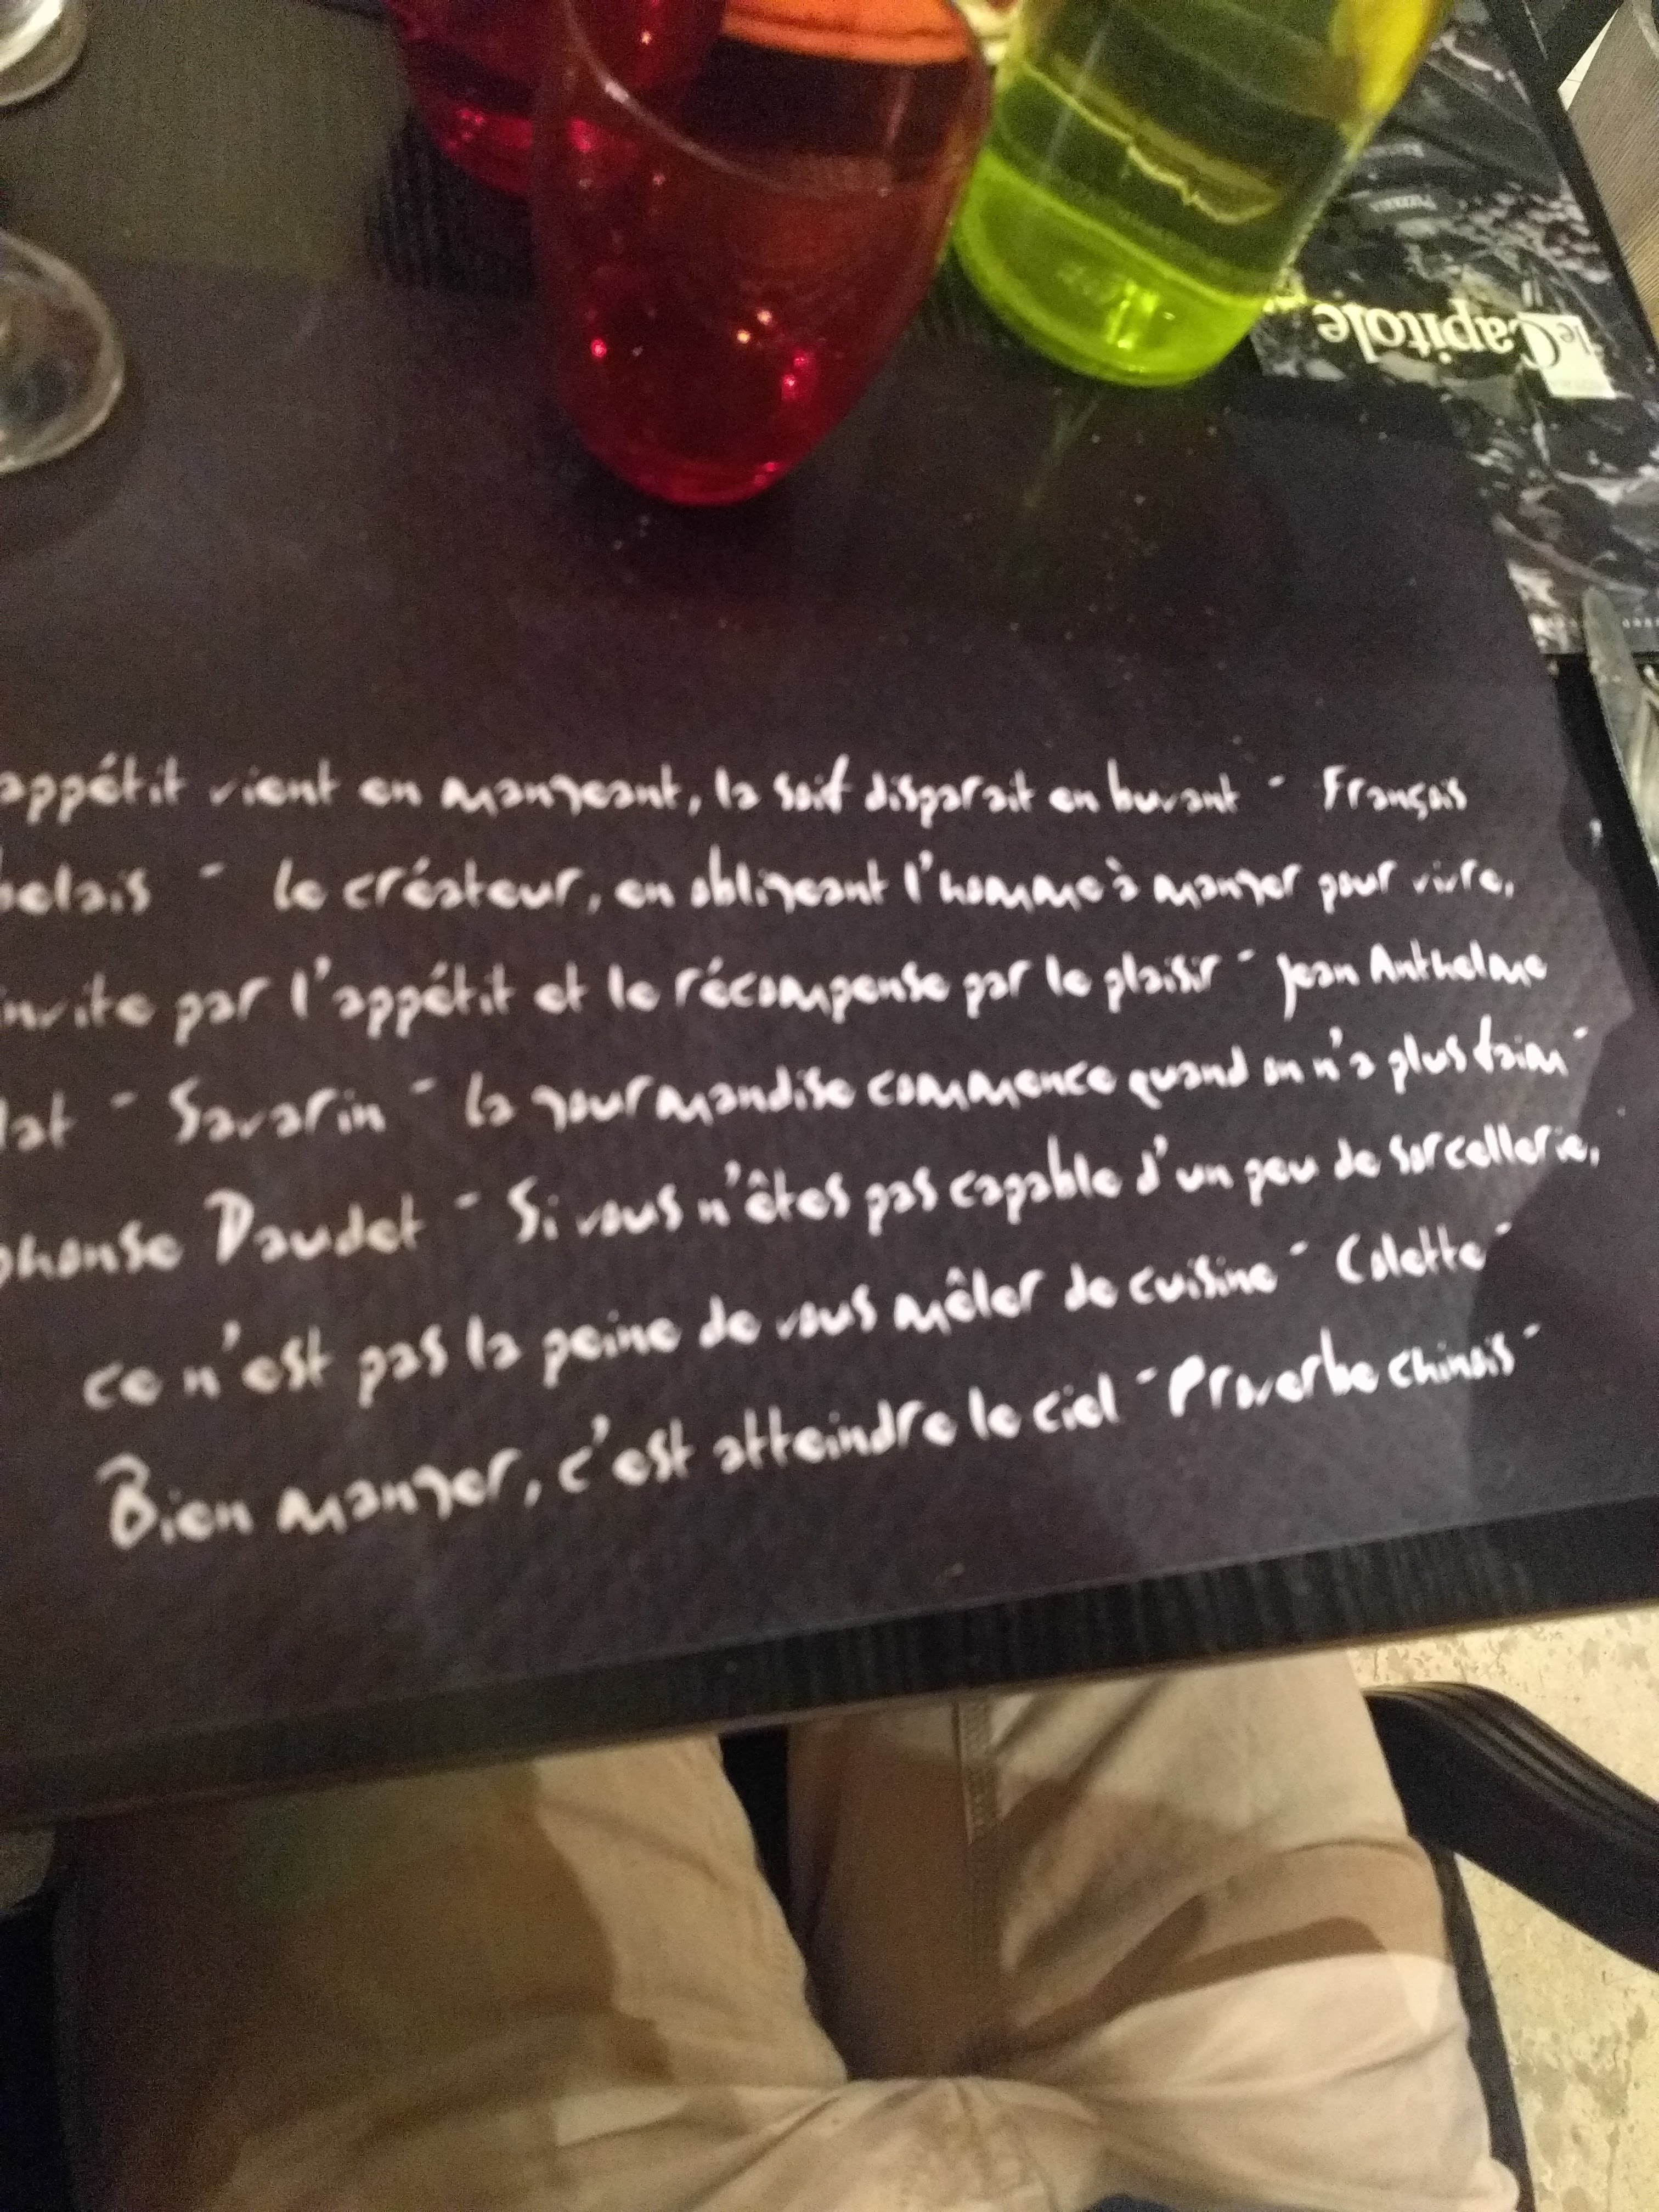 le Capitole
PIZZERIA
appétit vient en mangeant, la soif disparait en buvant - Français
belais - le créateur, en obligeant l'homme à manger pour vivre,
invite par l'appétit et le récompense par le plaisir - Jean Anthelme
lat - Savarin - la gourmandise commence quand on n'a plus faim -
phonse Daudet - Si vous n'êtes pas capable d'un peu de sorcellerie,
ce n'est pas la peine de vous mêler de cuisine - Colette -
Bien manger, c'est atteindre le ciel - Proverbe chinois -